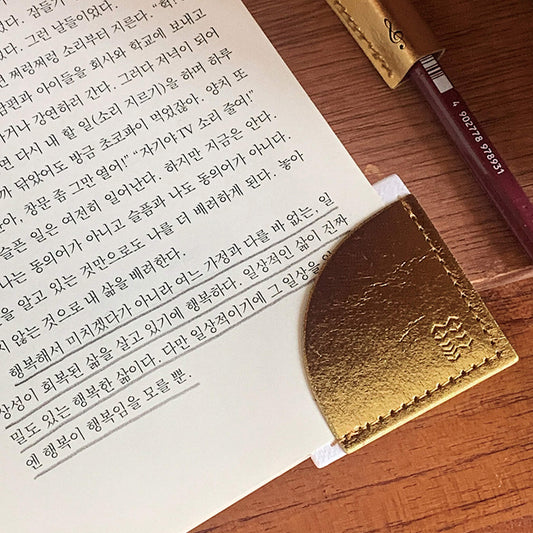 았다. 잠들기
었다. 그런 날들이었다.
면 쩌렁쩌렁 소리부터 지른다. "학
남편과 아이들을 회사와 학교에 보내고
거나 강연하러 간다. 그러다 저녁이 되어
면 다시 내 할 일(소리 지르기)을 하며 하루
가 닦았어도 방금 초코파이 먹었잖아. 양치 또
아, 창문 좀 그만 열어!" "자기야 TV 소리 줄여!"
슬픈 일은 여전히 일어난다. 하지만 지금은 안다.
나는 동의어가 아니고 슬픔과 나도 동의어가 아니다.
을 알고 있는 것만으로도 나를 더 배려하게 된다. 놓아
지 않는 것으로 내 삶을 배려한다.
행복해서 미치겠다가 아니라 여느 가정과 다를 바 없는, 일
상성이 회복된 삶을 살고 있기에 행복하다. 일상적인 삶이 진짜
밀도 있는 행복한 삶이다. 다만 일상적이기에 그 일상을
엔 행복이 행복임을 모를 뿐.
4 902778 978931